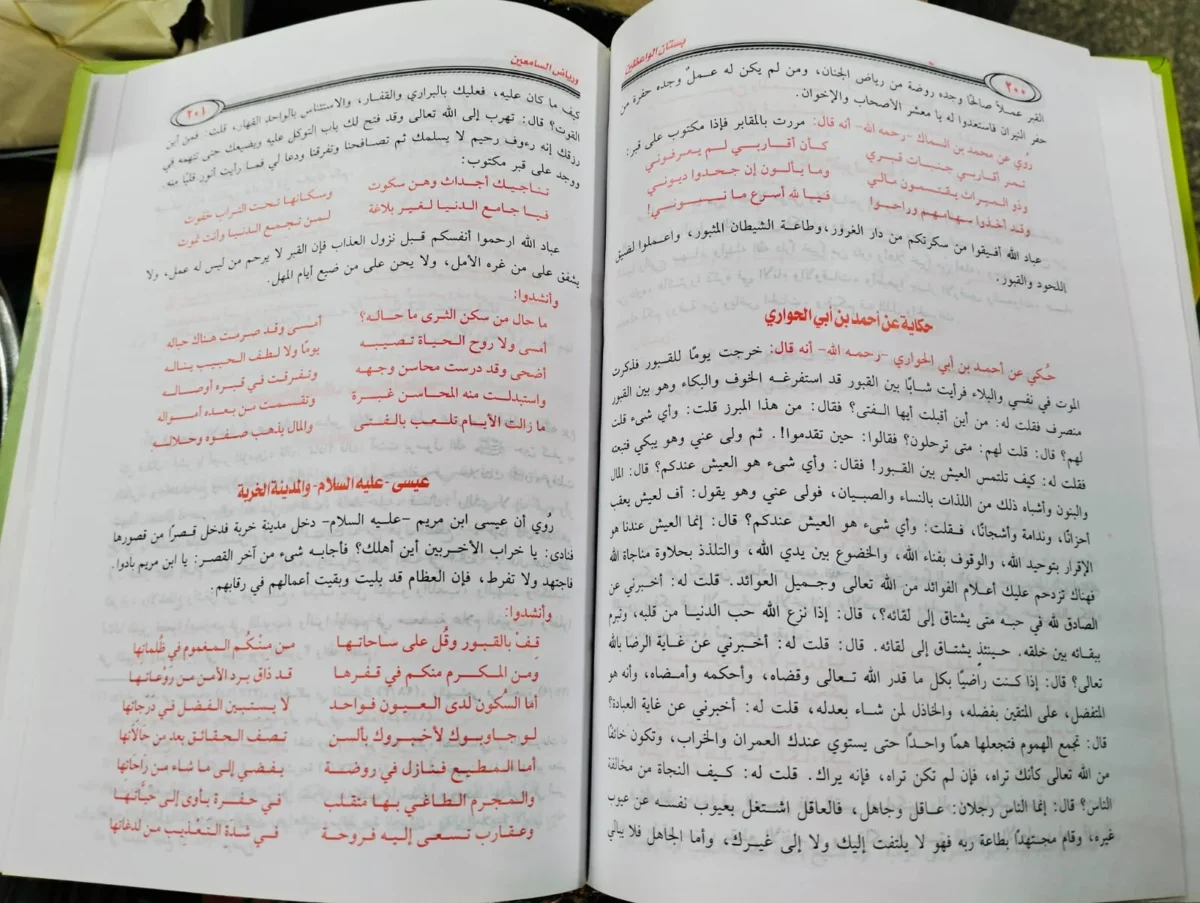 بستان الواعظين
٢٠٠
القبر عمـلاً صالحًا وجده روضة من رياض الجنان، ومن لم يكن له عـملٌ وجده حفرة من
حفر النيران فاستعدوا له يا معشر الأصحاب والإخوان.
رُوي عن محمد بن السماك -رحمه الله- أنه قال: مررت بالمقابر فإذا مكتوب على قبر:
تمر أقاربي جنبات قبري كأن أقاربي لم يعرفوني
وذو الميراث يقتسمون مالي وما يألون إن جحدوا ديوني
وقد أخذوا سهامهم وراحوا فيا لله أسرع ما نسوني!
عباد الله أفيقوا من سكرتكم من دار الغرور، وطاعة الشيطان المثبور، واعملوا لضيق
اللحود والقبور.
حكاية عن أحمد بن أبي الحواري
حُكي عن أحمد بن أبي الحواري -رحمه الله- أنه قال: خرجت يومًا للقبور فذكرت
الموت في نفسي والبلاء فرأيت شابًا بين القبور قد استفرغه الخوف والبكاء وهو بين القبور
منصرف فقلت له: من أين أقبلت أيها الفتى؟ فقال: من هذا المبرز قلت: وأي شيء قلت
لهم؟ قال: قلت لهم: متى ترحلون؟ فقالوا: حين تقدموا!. ثم ولى عني وهو يبكي فتبعته
فقلت له: كيف تلتمس العيش بين القبور! فقال: وأي شيء هو العيش عندكم؟ قال: المال
والبنون وأشباه ذلك من اللذات بالنساء والصبيان، فولى عني وهو يقول: أف لعيش يعقب
أحزانًا، وندامة وأشجانًا، فـقلت: وأي شيء هو العيش عندكم؟ قال: إنما العيش عندنا هو
الإقرار بتوحيد الله، والوقوف بفناء الله، والخضوع بين يدي الله، والتلذذ بحلاوة مناجاة الله
فهناك تزدحم عليك أعلام الفوائد من الله تعالى وجميل العوائد. قلت له: أخبرني عن
الصادق لله في حبه متى يشتاق إلى لقائه؟، قال: إذا نزع الله حب الدنيا من قلبه، وتبرم
ببقائه بين خلقه. حينئذ يشتاق إلى لقائه. قال: قلت له: أخبرني عن غاية الرضا بالله
تعالى؟ قال: إذا كنت راضيًا بكل ما قدر الله تـعالى وقضاه، وأحكمه وأمضاه، وأنه هو
المتفضل، على المتقين بفضله، والخاذل لمن شاء بعدله، قلت له: أخبرني عن غاية العبادة؟
قال: تجمع الهموم فتجعلها همًا واحدًا حتى يستوي عندك العمران والخراب، وتكون خائفًا
من الله تعالى كأنك تراه، فإن لم تكن تراه، فإنه يراك. قلت له: كيف النجاة من مخالفة
الناس؟ قال: إنما الناس رجلان: عاقل وجاهل، فالعاقل اشتغل بعيوب نفسه عن عيوب
غيره، وقام مجتهدًا بطاعة ربه فهو لا يلتفت إليك ولا إلى غيرك، وأما الجاهل فلا يبالي
ورياض السامعين
٢٠١
كيف ما كان عليه، فعليك بالبراري والقفار، والاستئناس بالواحد القهار، قلت: فمن أين
القوت؟ قال: تهرب إلى الله تعالى وقد فتح لك باب التوكل عليه ويضيعك حتى تتهمه في
رزقك إنه رءوف رحيم لا يسلمك ثم تصافحنا وتفرقنا ودعا لي فما رأيت أنور قلبًا منه.
ووجد على قبر مكتوب:
تناجيك أجداث وهن سكوت وسكانها تحت التراب خفوت
فيا جامع الدنيا لغير بلاغة لمن تجمع الدنيا وأنت تموت
عباد الله ارحموا أنفسكم قبل نزول العذاب فإن القبر لا يرحم من ليس له عمل، ولا
يشفق على من غره الأمل، ولا يحن على من ضيع أيام المهل.
وأنشدوا:
ما حال من سكن الثرى ما حاله؟ أمسى وقد صرمت هناك حباله
أمسى ولا روح الحياة تصيبه يومًا ولا لطف الحبيب يناله
أضحى وقد درست محاسن وجهه وتفرقت في قبره أوصاله
واستبدلت منه المحاسن غبرة وتقسمت من بعده أمواله
ما زالت الأيام تلعب بالفتى والمال يذهب صفوه وحلاله
عيسى -عليه السلام- والمدينة الخربة
رُوي أن عيسى ابن مريم -عليه السلام- دخل مدينة خربة فدخل قصرًا من قصورها
فنادى: يا خراب الأخربين أين أهلك؟ فأجابه شيء من آخر القصر: يا ابن مريم بادوا.
فاجتهد ولا تفرط، فإن العظام قد بليت وبقيت أعمالهم في رقابهم.
وأنشدوا:
قِفْ بالقبور وقُل على ساحاتها من منْكُم المغموم في ظلماتها
ومن المكرم منكم في قفرها قد ذاق برد الأمن من روعاتها
أما السُكون لدى العيون فواحد لا يستبين الفضل في درجاتها
لو جاوبوك لأخبروك بألسن تصف الحقائق بعد من حالاتها
أما المطيع فنازل في روضة يفضي إلى ما شاء من راحاتها
والمجرم الطاغي بها متقلب في حفرة يأوى إلى حيَّاتها
وعقارب تسعى إليه فروحة في شدة التعْذيب من لدغاتها